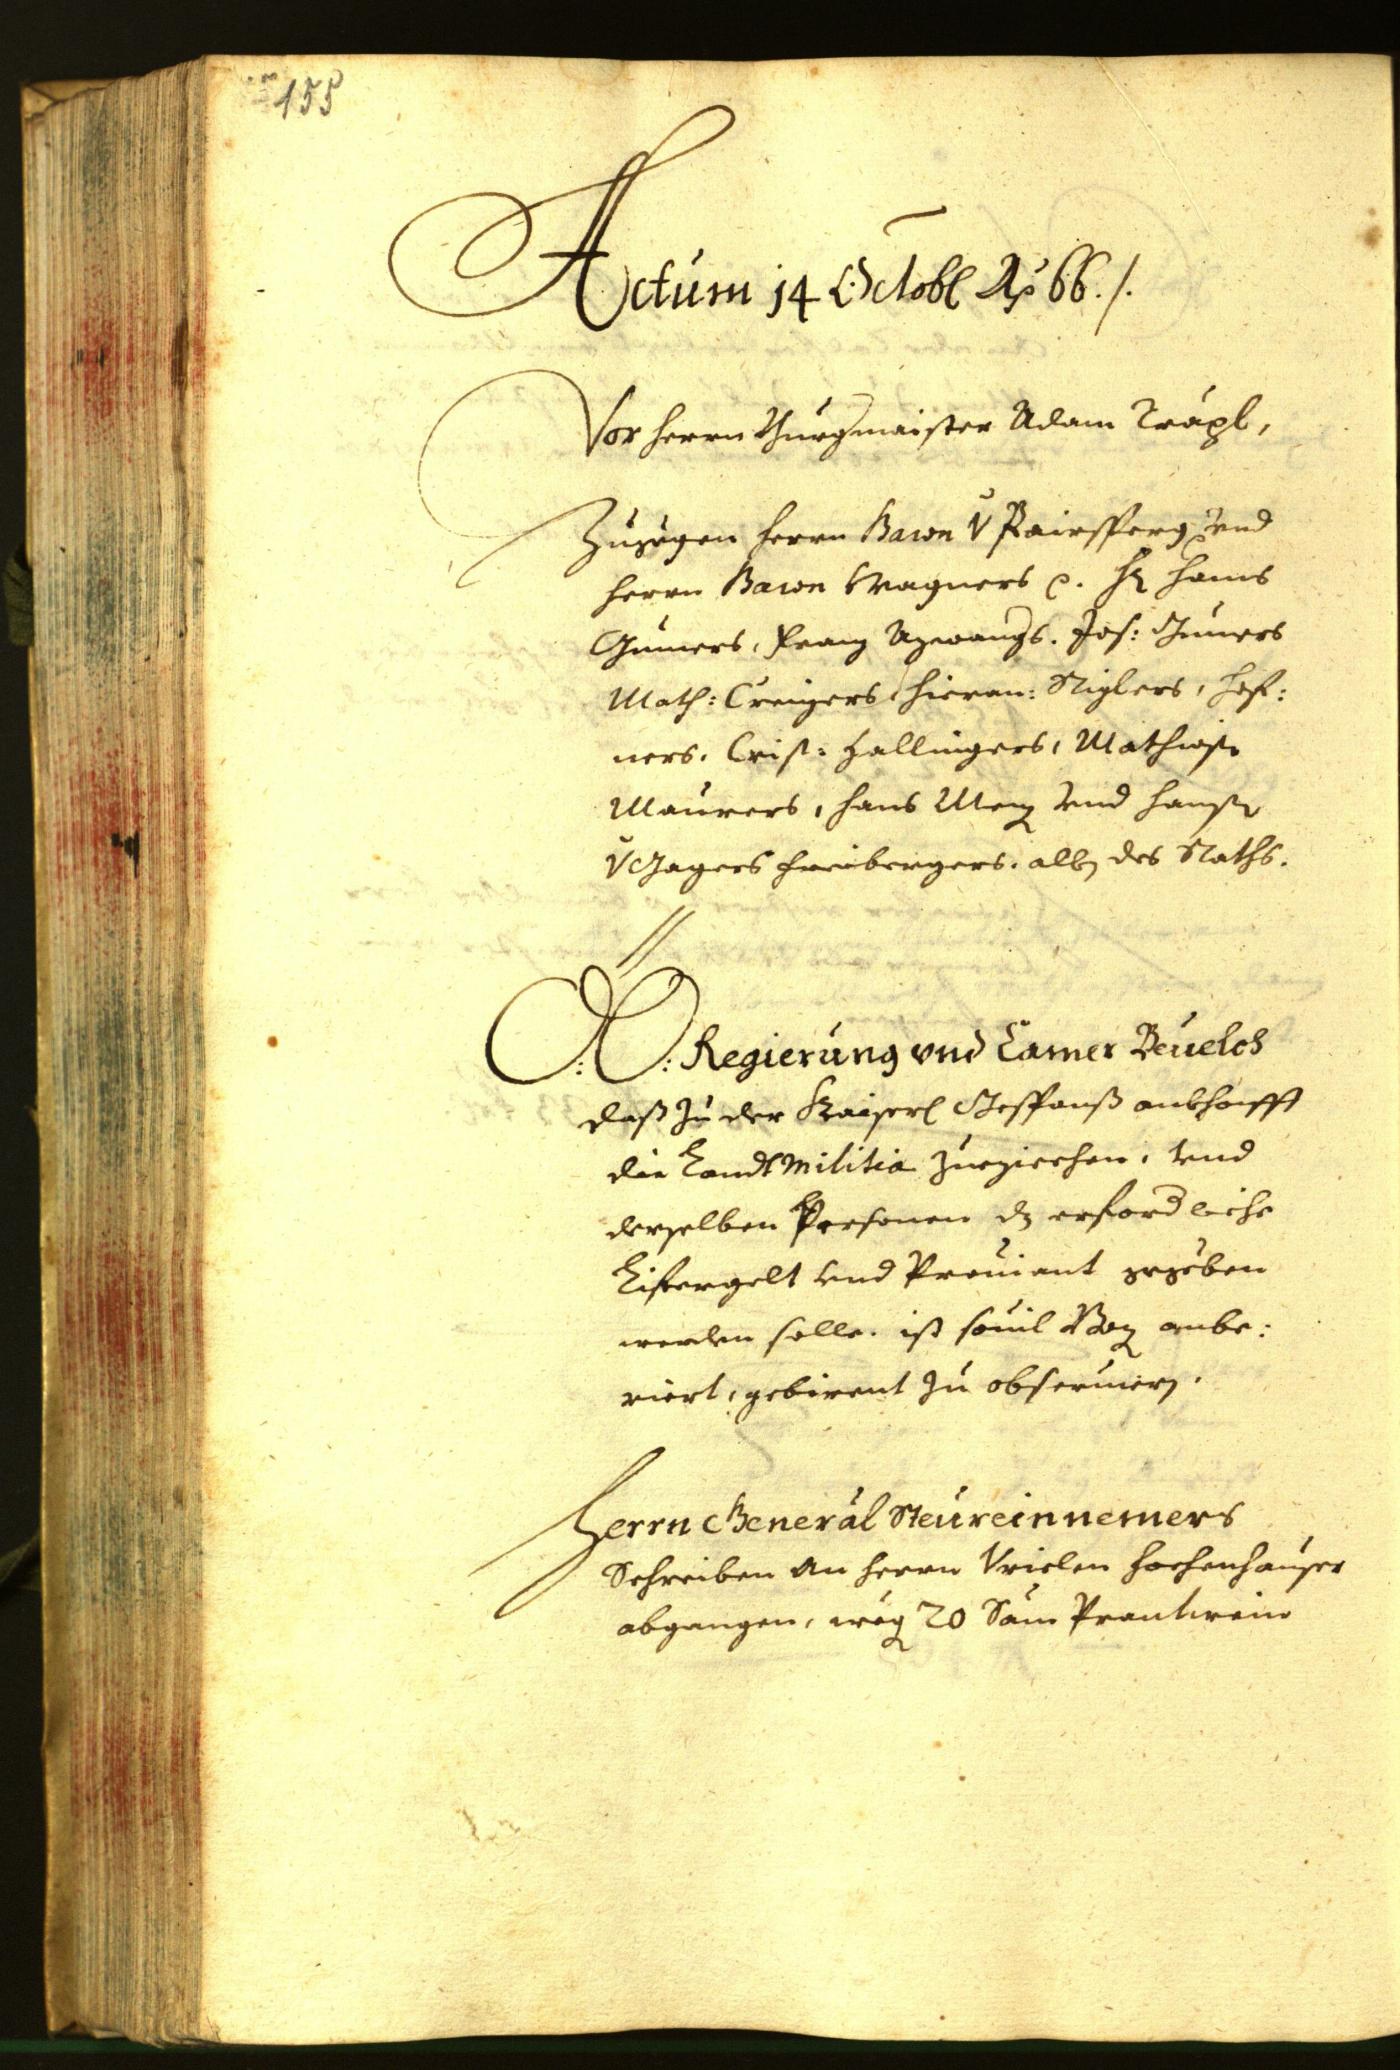 155
Actum 14 Octobl Ao 66 ./.
Vor herrn Burgmaister Adam Träpl,
Zugegen herrn Baron V Pairsperg vnd
herrn Baron Wagners p. Hr Hanns
Gumers, Franz Azwangs. Jos: Gumers
Math: Creizers, Hieron: Riglers, Hof:
ners. Crist: Hallingers, Mathiasn
Maurers, Hans Menz vnd Hansn
V Jagers Freibergers. alln des Raths.
O: O: Regierung vnd Camer Beuelch
daß zu der Kaiserl Gespanß
die Landtmilitia zuziechen, vnd
derselben Personen dz erforderliche
Lifergelt vnd Prouiant gegeben
werden solle. ist souil Bozn anbe:
riert, gebirent zu obseruiern.
Herrn General Steureinnemers
Schreiben an herrn Vrielen Hochenhauser
abgangen, wegn 20 Säm Prantwein